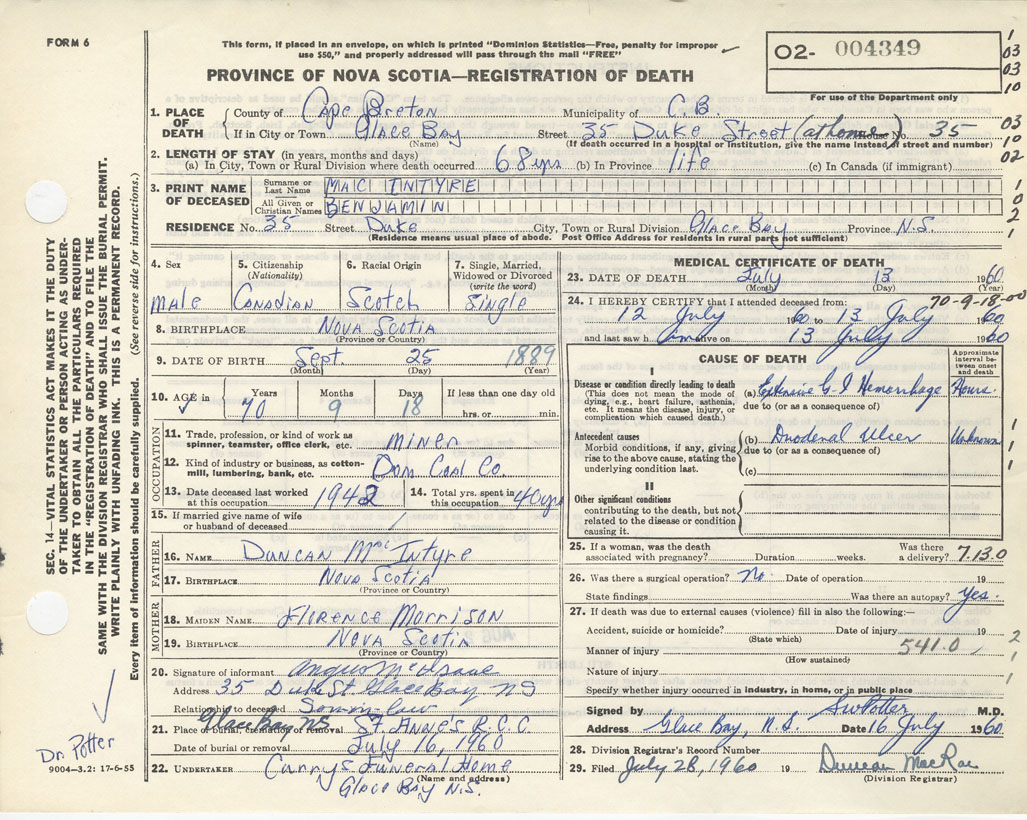 FORM 6
This form, if placed in an envelope, on which is printed "Dominion Statistics—Free, penalty for improper
use $50," and properly addressed will pass through the mail "FREE"
PROVINCE OF NOVA SCOTIA—REGISTRATION OF DEATH
02- 004349
For use of the Department only
1. PLACE OF DEATH County of Cape Breton Municipality of C.B.
If in City or Town Glace Bay Street 35 Duke Street (at home) House No. 35
(Name) (If death occurred in a hospital or institution, give the name instead of street and number)
2. LENGTH OF STAY (in years, months and days)
(a) In City, Town or Rural Division where death occurred 68 yrs (b) In Province life (c) In Canada (if immigrant)
3. PRINT NAME OF DECEASED Surname or Last Name MAC INTYRE
All Given or Christian Names BENJAMIN
RESIDENCE No. 35 Street Duke City, Town or Rural Division Glace Bay Province N.S.
(Residence means usual place of abode. Post Office Address for residents in rural parts not sufficient)
4. Sex 5. Citizenship (Nationality) 6. Racial Origin 7. Single, Married, Widowed or Divorced (write the word)
Male Canadian Scotch Single
8. BIRTHPLACE Nova Scotia
(Province or Country)
9. DATE OF BIRTH Sept. 25 1889
(Month) (Day) (Year)
10. AGE in Years Months Days If less than one day old
70 9 18 hrs. or min.
OCCUPATION
11. Trade, profession, or kind of work as
spinner, teamster, office clerk, etc. Miner
12. Kind of industry or business, as cotton-
mill, lumbering, bank, etc. Dom Coal Co.
13. Date deceased last worked
at this occupation 1942
14. Total yrs. spent in
this occupation 40 yrs
15. If married give name of wife
or husband of deceased
FATHER
16. NAME Duncan MacIntyre
17. BIRTHPLACE Nova Scotia
(Province or Country)
MOTHER
18. MAIDEN NAME Florence Morrison
19. BIRTHPLACE Nova Scotia
(Province or Country)
20. Signature of informant Angus
Address 35 Duke St Glace Bay NS
Relationship to deceased Son-in-law
Glace Bay NS
21. Place of burial, cremation or removal St. Anne's R.C.C.
Date of burial or removal July 16, 1960
22. UNDERTAKER Currys Funeral Home
(Name and address)
Glace Bay N.S.
MEDICAL CERTIFICATE OF DEATH
23. DATE OF DEATH July 13 1960
(Month) (Day) (Year)
24. I HEREBY CERTIFY that I attended deceased from: 70-9-18-00
12 July 1960 to 13 July 1960
and last saw him alive on 13 July 1960
CAUSE OF DEATH
Approximate interval between onset and death
I
Disease or condition directly leading to death
(This does not mean the mode of
dying, e.g., heart failure, asthenia,
etc. It means the disease, injury, or
complication which caused death.)
(a) Extensive G-I Hemorrhage Hours.
due to (or as a consequence of)
Antecedent causes
Morbid conditions, if any, giving
rise to the above cause, stating the
underlying condition last.
(b) Duodenal Ulcer Unknown
due to (or as a consequence of)
(c)
II
Other significant conditions
contributing to the death, but not
related to the disease or condition
causing it.
25. If a woman, was the death
associated with pregnancy? Duration weeks. Was there a delivery? 7.13.0
26. Was there a surgical operation? No. Date of operation 19
State findings Was there an autopsy? Yes.
27. If death was due to external causes (violence) fill in also the following:—
Accident, suicide or homicide? Date of injury 19
(State which)
Manner of injury 541.0
(How sustained)
Nature of injury
Specify whether injury occurred in industry, in home, or in public place
Signed by SW Potter M.D.
Address Glace Bay, N.S. Date 16 July 1960
28. Division Registrar's Record Number
29. Filed July 28, 1960 19 Duncan MacRae
(Division Registrar)
SEC. 14—VITAL STATISTICS ACT MAKES IT THE DUTY
OF THE UNDERTAKER OR PERSON ACTING AS UNDER-
TAKER TO OBTAIN ALL THE PARTICULARS REQUIRED
IN THE "REGISTRATION OF DEATH" AND TO FILE THE
SAME WITH THE DIVISION REGISTRAR WHO SHALL ISSUE THE BURIAL PERMIT.
WRITE PLAINLY WITH UNFADING INK. THIS IS A PERMANENT RECORD.
Every item of information should be carefully supplied. (See reverse side for instructions.)
Dr. Potter
9004—3.2: 17-6-55
1
03
03
10
03
10
02
1
0
2
1
1
1
1
2
1
1